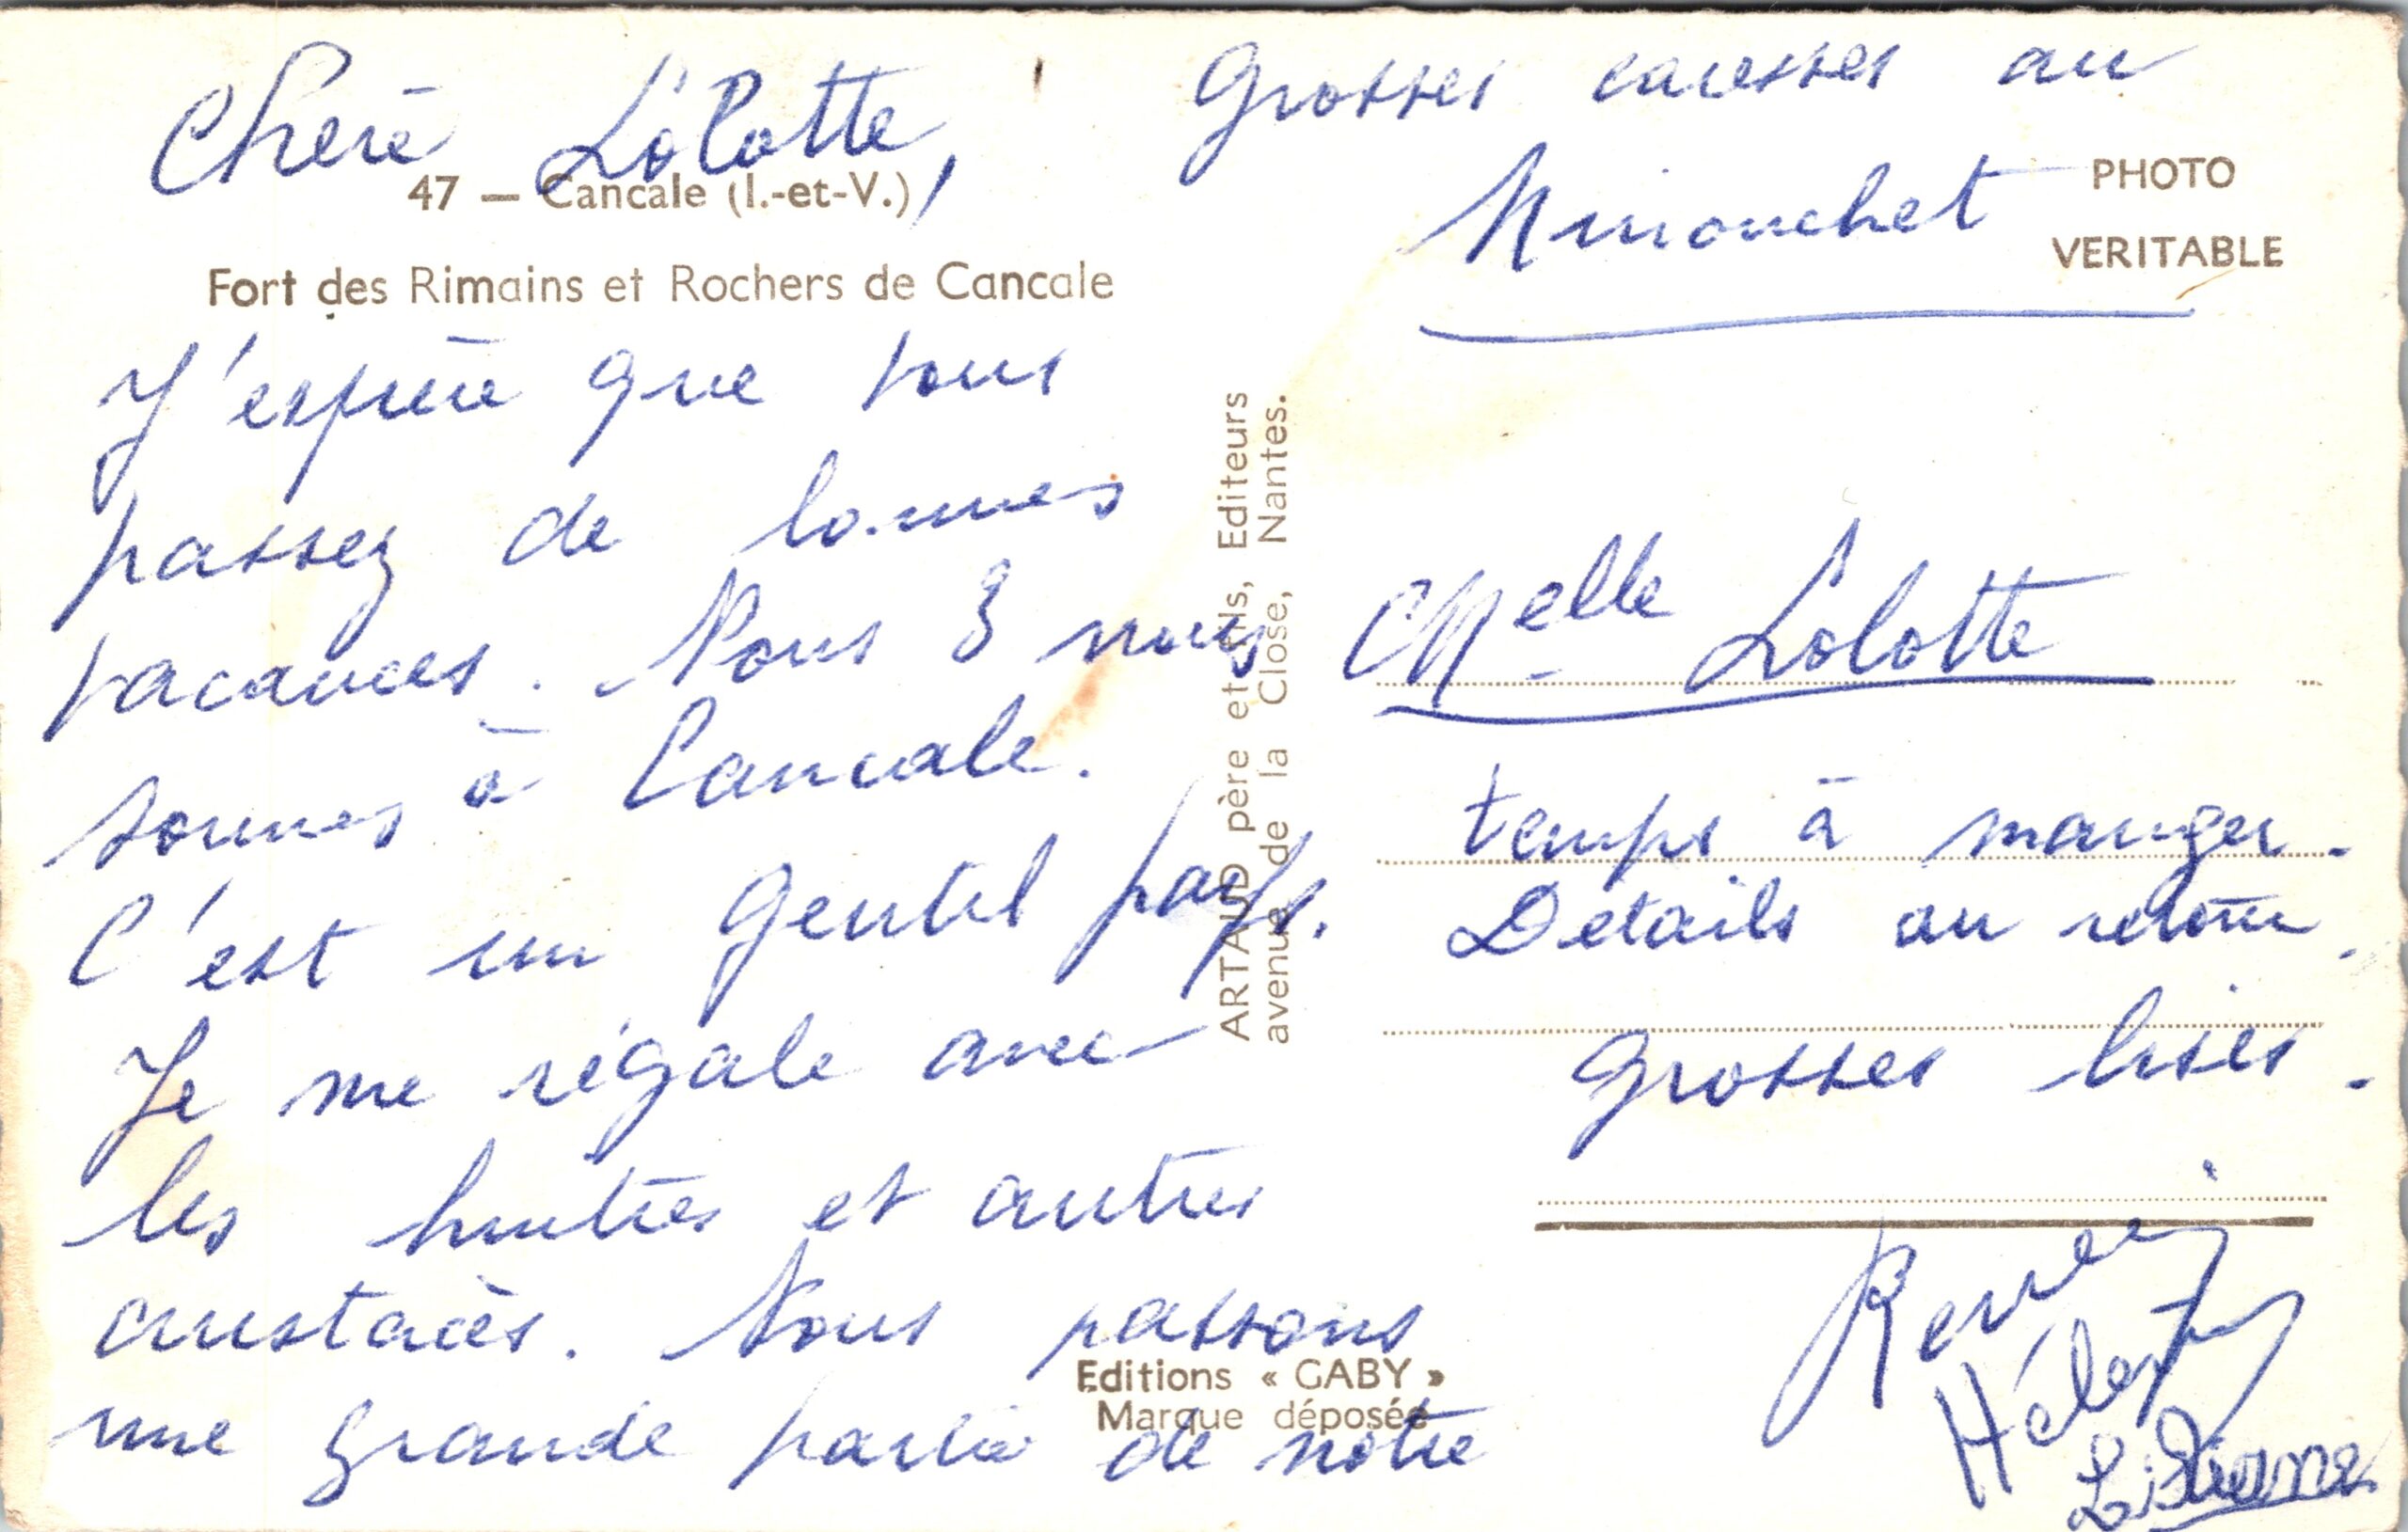 Chère Lolotte,
47 — Cancale (I.-et-V.)
Fort des Rimains et Rochers de Cancale
J'espère que vous
passez de bonnes
vacances. Nous 3 nous
sommes à Cancale.
C'est un gentil pays.
Je me régale avec
les huitres et autres
crustacés. Nous passons
une grande partie de notre
Editions « GABY »
Marque déposée
ARTAUD père et fils, Editeurs
avenue de la Close, Nantes.
Grosses caresses au
Minouchet
PHOTO
VERITABLE
Melle Lolotte
temps à manger.
Détails au retour.
Grosses bises.
Renée